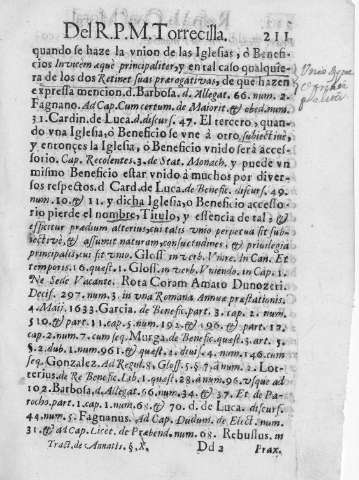 Del R.P.M. Torrecilla. 211
quando se haze la vnion de las Iglesias, ò Benefi-
cios Invicem æquè principaliter, y en tal caso qualquie-
ra de los dos Retinet suas prærogativas, de que hazen
expressa mencion. d. Barbosa. d. Allegat. 66. num. 2.
Fagnano. Ad Cap. Cum certum. de Maiorit. & obed. num.
31. Cardin. de Luca. d. discurs. 47. El tercero, quan-
do vna Iglesia, ò Beneficio se vne à otro subiectivè,
y entonçes la Iglesia, ò Beneficio vnido serà acces-
sorio. Cap. Recolentes. 3. de Stat. Monach. y puede vn
mismo Beneficio estar vnido à muchos por diver-
sos respectos. d. Card. de Luca. de Benefic. discurs. 49.
num. 10. & 11. y dicha Iglesia, ò Beneficio accesso-
rio pierde el nombre, Titulo, y essencia de tal, &
efficitur prædium alterius, cui talis vnio perpetua fit sub-
iectivè, & assumit naturam, consuetudines, & privilegia
principalis, cui fit vnio. Gloss. in verb. Vnire. In Can. Et
temporis. 16. quæst. 1. Gloss. in verb. Vniendo. in Cap. 1.
Ne Sede Vacante. Rota Coram Amato Dunozeti.
Decis. 297. num. 3. in vna Romana Annuæ præstationis.
4. Maij. 1633. Garcia. de Benefic. part. 3. cap. 2. num.
510. & part. 11. cap. 5. num. 192. & 196. & part. 12.
cap. 2. num. 7. cum seq. Murga. de Benefic. quæst. 3. art. 5.
§. 2. dub. 1. num. 961. & quæst. 2. divs. 4. num. 146. cum
seq. Gonzalez. Ad Regul. 8. Gloss. 5. §. 7. à num. 2. Lot-
terius. de Re Benefic. Lib. 1. quæst. 28. à num. 96. vsque ad
102. Barbosa. d. Allegat. 66. num. 34. & 37. Et de Pa-
rocho. part. 1. cap. 1. num. 68. & 70. d. de Luca. discurs.
44. num. 5. Fagnanus. Ad Cap. Dudum. de Elect. num.
31. & ad Cap. Licet. de Præbend. num. 08. Rebuffus. in
Tract. de Annatis. §. X. Dd 2 Prax.